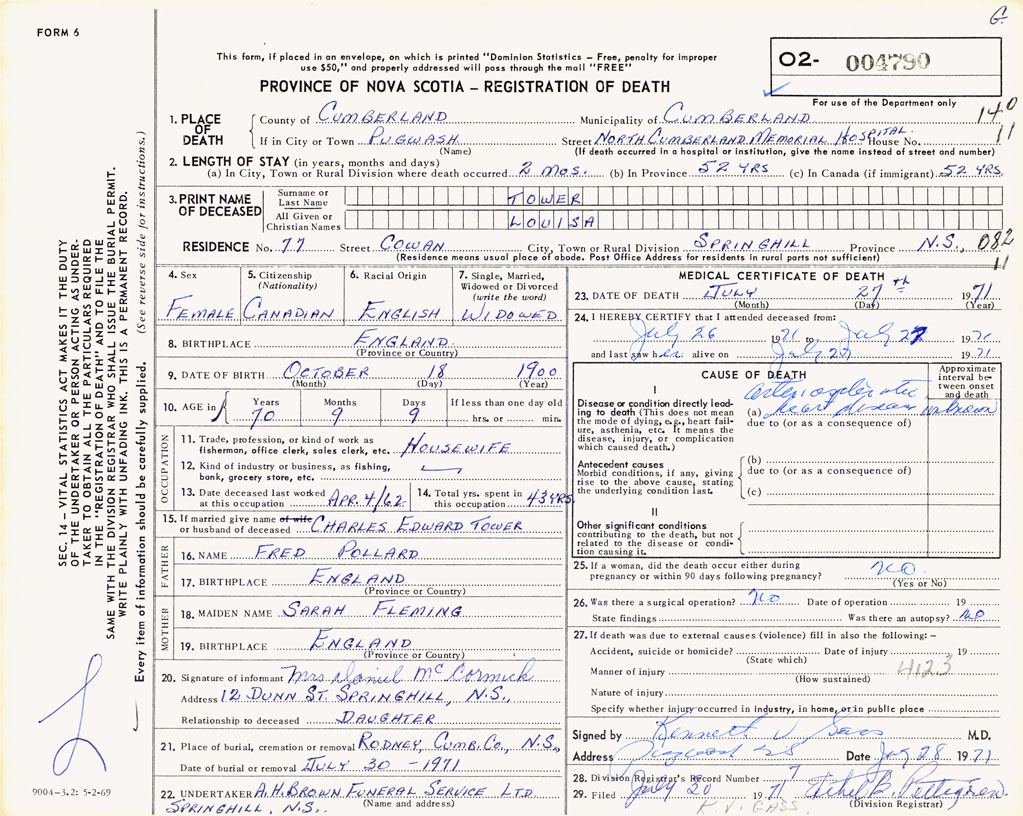 G.
FORM 6
This form, if placed in an envelope, on which is printed "Dominion Statistics – Free, penalty for improper
use $50," and properly addressed will pass through the mail "FREE"
O2- 004790
PROVINCE OF NOVA SCOTIA – REGISTRATION OF DEATH
For use of the Department only
1. PLACE OF DEATH
County of CUMBERLAND Municipality of CUMBERLAND 140
If in City or Town PUGWASH Street NORTH CUMBERLAND MEMORIAL HOSPITAL House No. 11
(Name) (If death occurred in a hospital or institution, give the name instead of street and number)
2. LENGTH OF STAY (in years, months and days)
(a) In City, Town or Rural Division where death occurred 2 MOS. (b) In Province 52 YRS (c) In Canada (if immigrant) 52 YRS.
3. PRINT NAME OF DECEASED
Surname or Last Name TOWER
All Given or Christian Names LOUISA
RESIDENCE No. 77 Street COWAN City, Town or Rural Division SPRINGHILL Province N.S., 082
(Residence means usual place of abode. Post Office Address for residents in rural parts not sufficient) 11
4. Sex FEMALE
5. Citizenship (Nationality) CANADIAN
6. Racial Origin ENGLISH
7. Single, Married, Widowed or Divorced (write the word) WIDOWED
8. BIRTHPLACE ENGLAND
(Province or Country)
9. DATE OF BIRTH OCTOBER 18 1900
(Month) (Day) (Year)
10. AGE in Years 70 Months 9 Days 9 If less than one day old
hrs. or min.
OCCUPATION
11. Trade, profession, or kind of work as
fisherman, office clerk, sales clerk, etc. HOUSEWIFE
12. Kind of industry or business, as fishing,
bank, grocery store, etc.
13. Date deceased last worked at this occupation APR. 4/62
14. Total yrs. spent in this occupation 43 YRS
15. If married give name of wife
or husband of deceased CHARLES EDWARD TOWER
FATHER
16. NAME FRED POLLARD
17. BIRTHPLACE ENGLAND
(Province or Country)
MOTHER
18. MAIDEN NAME SARAH FLEMING
19. BIRTHPLACE ENGLAND
(Province or Country)
20. Signature of informant Mrs Daniel McCormick
Address 12 DUNN ST. SPRINGHILL, N.S.,
Relationship to deceased DAUGHTER
21. Place of burial, cremation or removal RODNEY, CUMB. CO., N.S.,
Date of burial or removal JULY 30 – 1971
22. UNDERTAKER A.H. BROWN FUNERAL SERVICE LTD.
SPRINGHILL, N.S. (Name and address)
MEDICAL CERTIFICATE OF DEATH
23. DATE OF DEATH JULY 27th 1971
(Month) (Day) (Year)
24. I HEREBY CERTIFY that I attended deceased from:
July 26 1971 to July 27 1971
and last saw her alive on July 27 1971
CAUSE OF DEATH
Approximate interval between onset and death
I
Disease or condition directly leading to death (This does not mean the mode of dying, e.g., heart failure, asthenia, etc. It means the disease, injury, or complication which caused death.)
(a) heart disease unknown
due to (or as a consequence of)
Antecedent causes
Morbid conditions, if any, giving rise to the above cause, stating the underlying condition last.
(b)
due to (or as a consequence of)
(c)
II
Other significant conditions
contributing to the death, but not related to the disease or condition causing it.
25. If a woman, did the death occur either during
pregnancy or within 90 days following pregnancy? NO.
(Yes or No)
26. Was there a surgical operation? NO Date of operation 19
State findings Was there an autopsy? NO
27. If death was due to external causes (violence) fill in also the following: –
Accident, suicide or homicide? Date of injury 19
(State which)
Manner of injury 4123
(How sustained)
Nature of injury
Specify whether injury occurred in industry, in home, or in public place
Signed by Kenneth V Gass M.D.
Address Pugwash NS Date July 28 1971
28. Division Registrar's Record Number 7
29. Filed July 20 1971 Ethel B. Pettigrew
(Division Registrar)
K. V. GASS
SEC. 14 – VITAL STATISTICS ACT MAKES IT THE DUTY
OF THE UNDERTAKER OR PERSON ACTING AS UNDER-
TAKER TO OBTAIN ALL THE PARTICULARS REQUIRED
IN THE "REGISTRATION OF DEATH" AND TO FILE THE
SAME WITH THE DIVISION REGISTRAR WHO SHALL ISSUE THE BURIAL PERMIT.
WRITE PLAINLY WITH UNFADING INK. THIS IS A PERMANENT RECORD.
Every item of information should be carefully supplied. (See reverse side for instructions.)
9004-3.2: 5-2-69